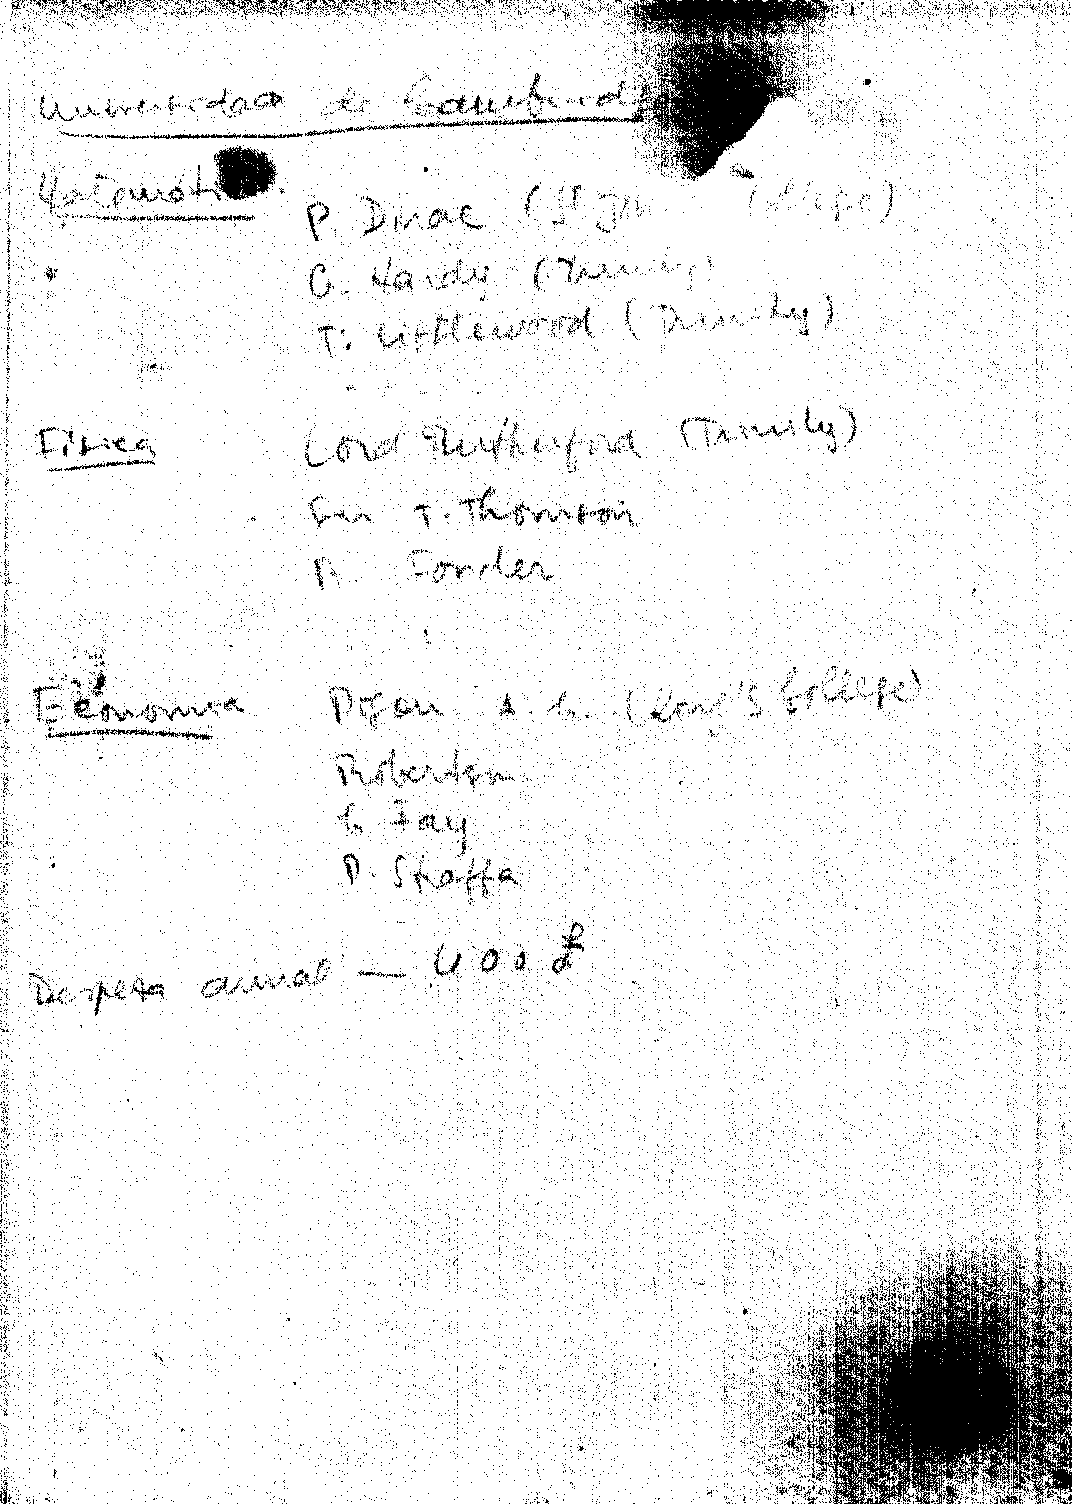 Universidade de Cambrid
Matemáti
P. Dirac (St Joh College)
G. Hardy (Trinity)
T. Littlewood (Trinity)
Física Lord Rutherford (Trinity)
Sir T. Thomson
Economia Pigou A. C. (King's College)
Robertson
C. Fay
P. Sraffa
Despesa anual — 400 £